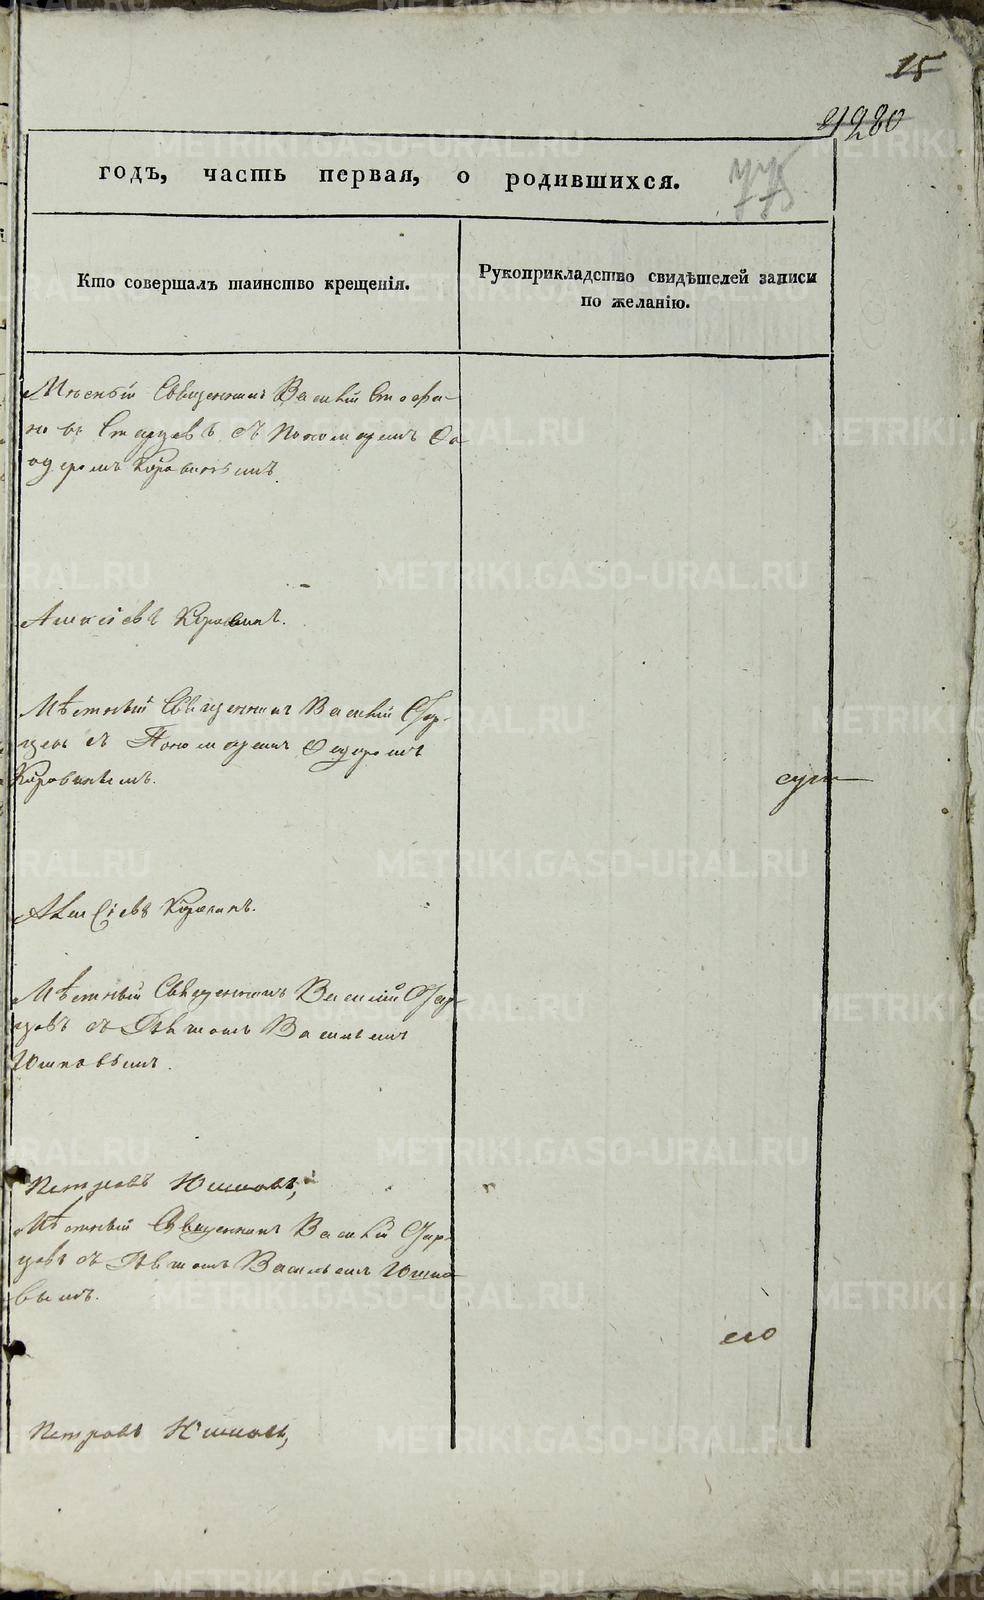 15
годъ, часть первая, о родившихся.
775
Кто совершалъ таинство крещенія.
Рукоприкладство свидѣтелей записи
по желанію.
Мѣстный Священникъ Василій Стефа-
новъ Старцевъ съ Пономаремъ Фе
одоромъ Коровинымъ.
Алексіевъ Коровинъ.
Мѣстный Священникъ Василій Стар-
цевъ съ Пономаремъ Федоромъ
Коровинымъ.
Алексіевъ Коровинъ.
Мѣстный Священникъ Василій Стар-
цовъ съ Васильемъ
Юшковымъ.
Петровъ Юшковъ,
Мѣстный Священникъ Василій Стар-
цовъ съ Васильемъ Юшко
вымъ.
его
Петровъ Юшковъ,
METRIKI.GASO-URAL.RU